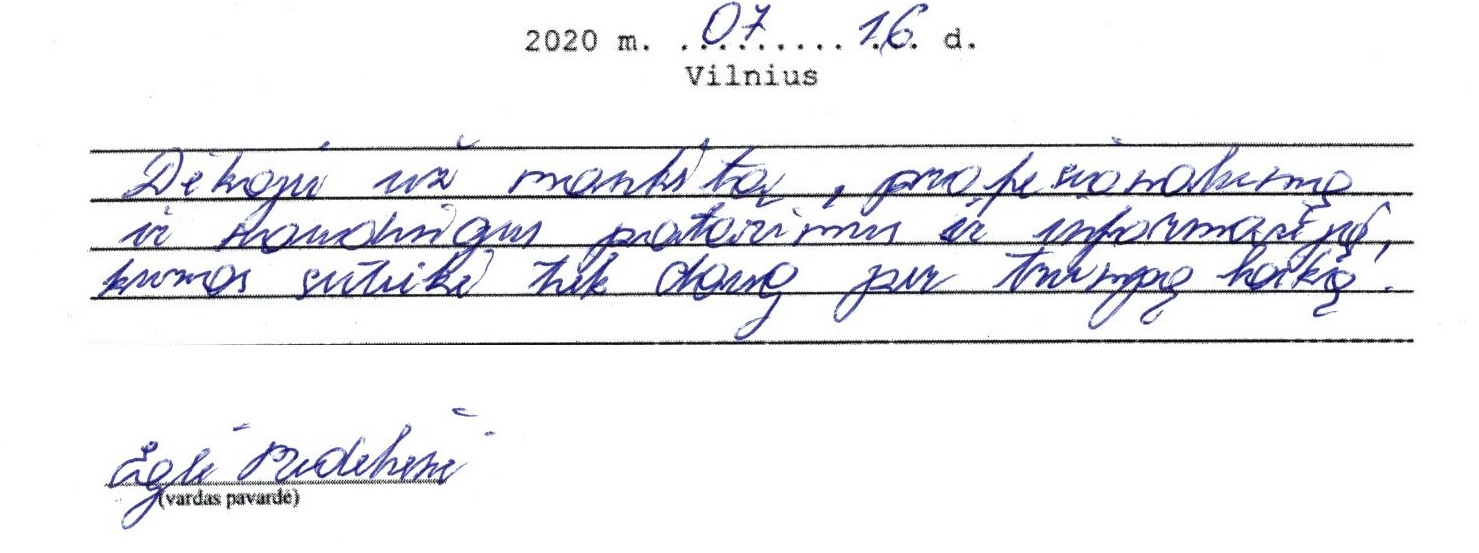 2020 m. 07 16 d.
Vilnius
Dėkoju už mankštą, profesionalumą
ir naudingus patarimus ir informaciją,
kurios suteikė tiek daug per trumpą laiką!
Eglė
(vardas pavardė)